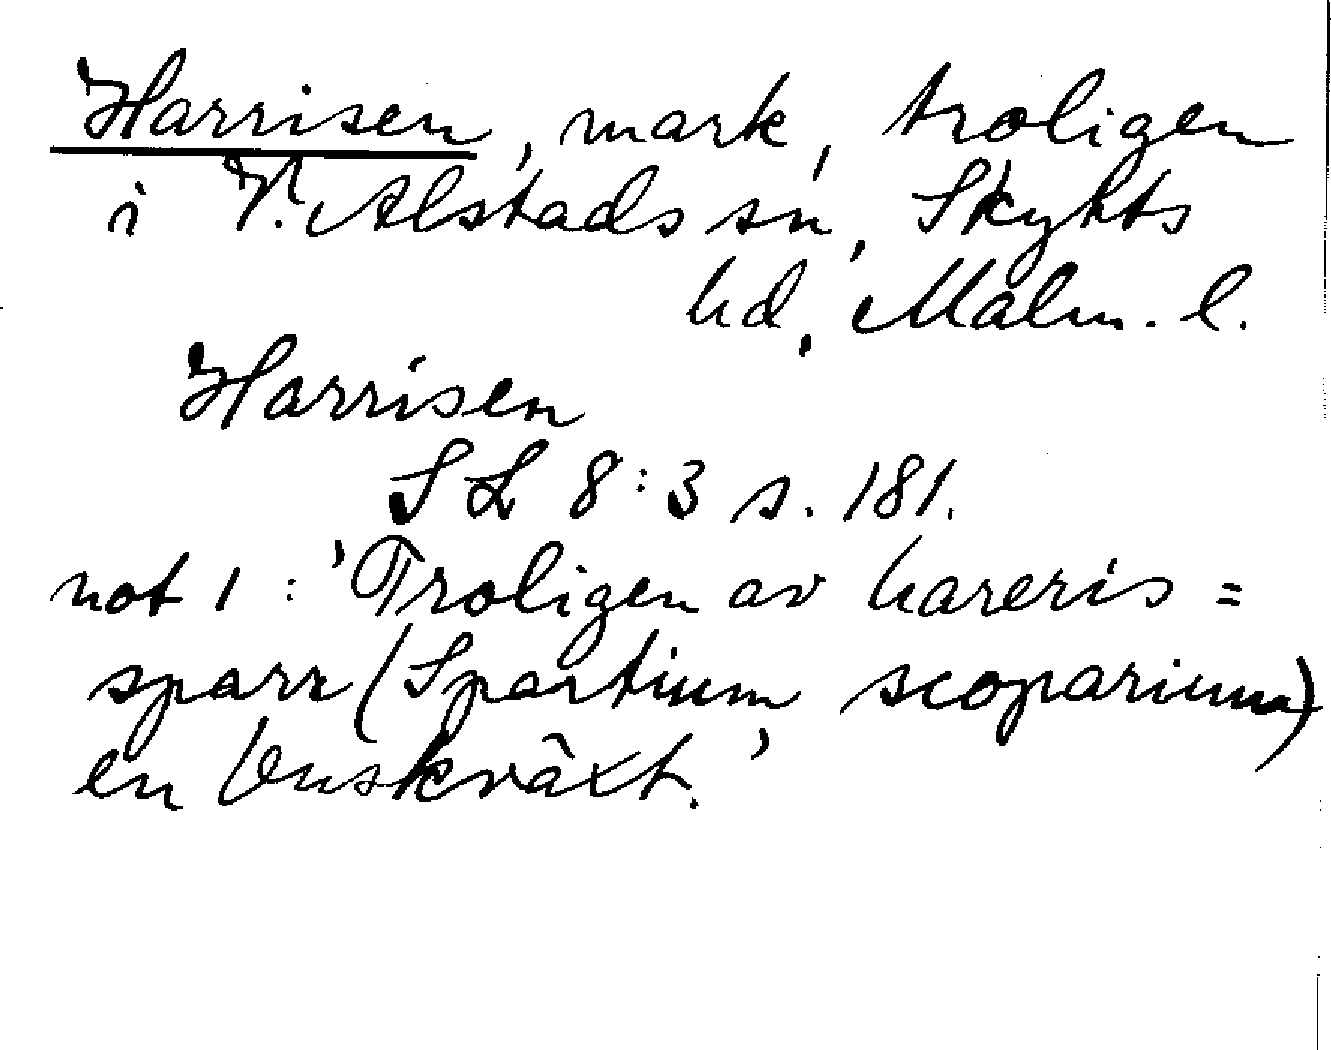 Harrisen, mark, troligen
i V. Alstads sn, Skytts
hd, Malm. l.
Harrisen
SL 8:3 s. 181.
not 1: 'Troligen av hareris =
sparr (Spartium scoparium)
en buskväxt.'